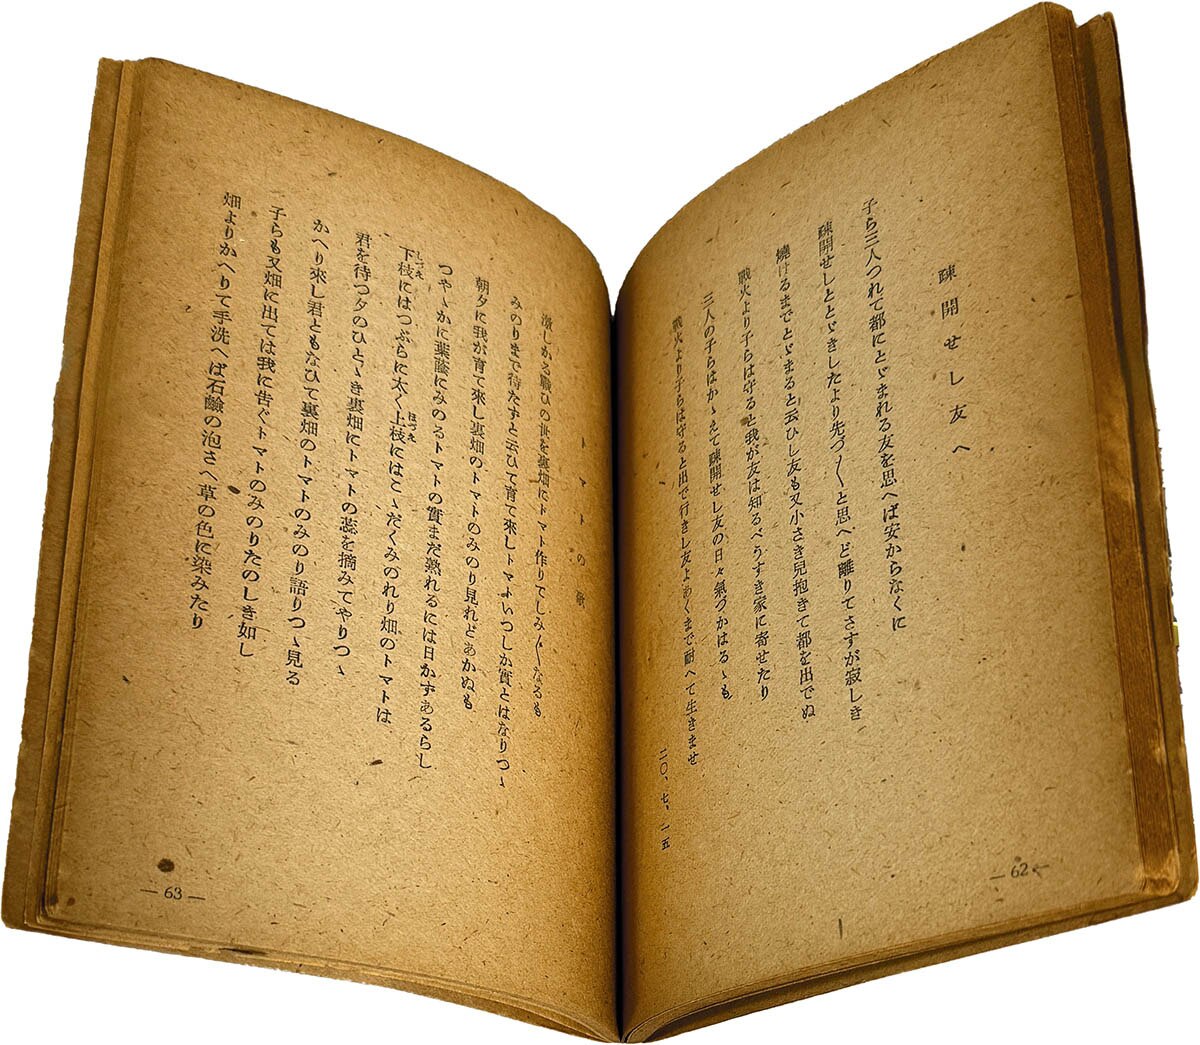 疎開せし友へ
子ら三人つれて都にとゞまれる友を思へば安からなくに
疎開せしととゞきしたより先づ〳〵と思へど離りてさすが寂しき
燒けるまでとゞまると云ひし友も又小さき兒抱きて都を出でぬ
戰火より子らは守ると我が友は知るべうすき家に寄せたり
三人の子らはかゝえて疎開せし友の日々氣づかはるゝも
戰火より子らは守ると出で行きし友よあくまで耐へて生きませ
二〇、七、一五
— 62 —
トマトの歌
激しかる戰ひの世を裏畑にトマト作りてしみ〴〵なるも
みのりまで待たずと云ひて育て來しトマトいつしか實とはなりつゝ
朝夕に我が育て來し裏畑のトマトのみのり見れどあかぬも
つやゝかに葉蔭にみのるトマトの實まだ熟れるには日かずあるらし
下枝にはつぶらに太く上枝にはこゝだくみのれり畑のトマトは
君を待つ夕のひとゝき裏畑にトマトの蕊を摘みてやりつゝ
かへり來し君ともなひて裏畑のトマトのみのり語りつゝ見る
子らも又畑に出ては我に告ぐトマトのみのりたのしき如し
畑よりかへりて手洗へば石鹼の泡さへ草の色に染みたり
— 63 —